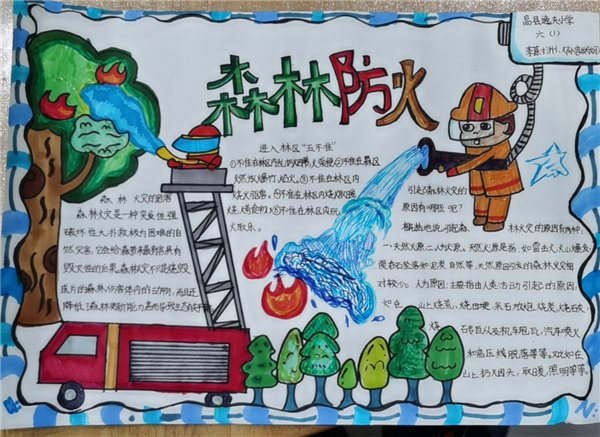 森林防火
高县逸夫小学
六（1）
进入林区“五不准”
①不准在林区
②不准在林区
燃放爆竹、焰火。③不准在林区
烧火驱兽。④不准在林区内烧火取暖、
⑤不准在林区内玩
火取乐。
森林火灾的危害
森林火灾是一种突发性强、
破坏性大、扑救极为困难的自
然灾害，它会给森林带来最有害具有
毁灭性的后果。森林火灾不只是烧毁
成片的森林，伤害林内的动物，而且还
降低了森林
引起森林火灾的
原因有哪些呢？
概括地说，引起森
林火灾的原因有两种，
一天然火源，二人为火源。天然火源是指：如雷击火、火山爆发、
自然等。天然原因引发的森林火灾相
对较小。人为原因：主要指由人类活动引起的原因，
如在
山上烧荒、烧田埂、采石放炮、烧炭、烧石灰、
烧
机车甩瓦、汽车喷火
和高压线脱落等等。又比如在
山上扔烟头、取暖、照明等等。